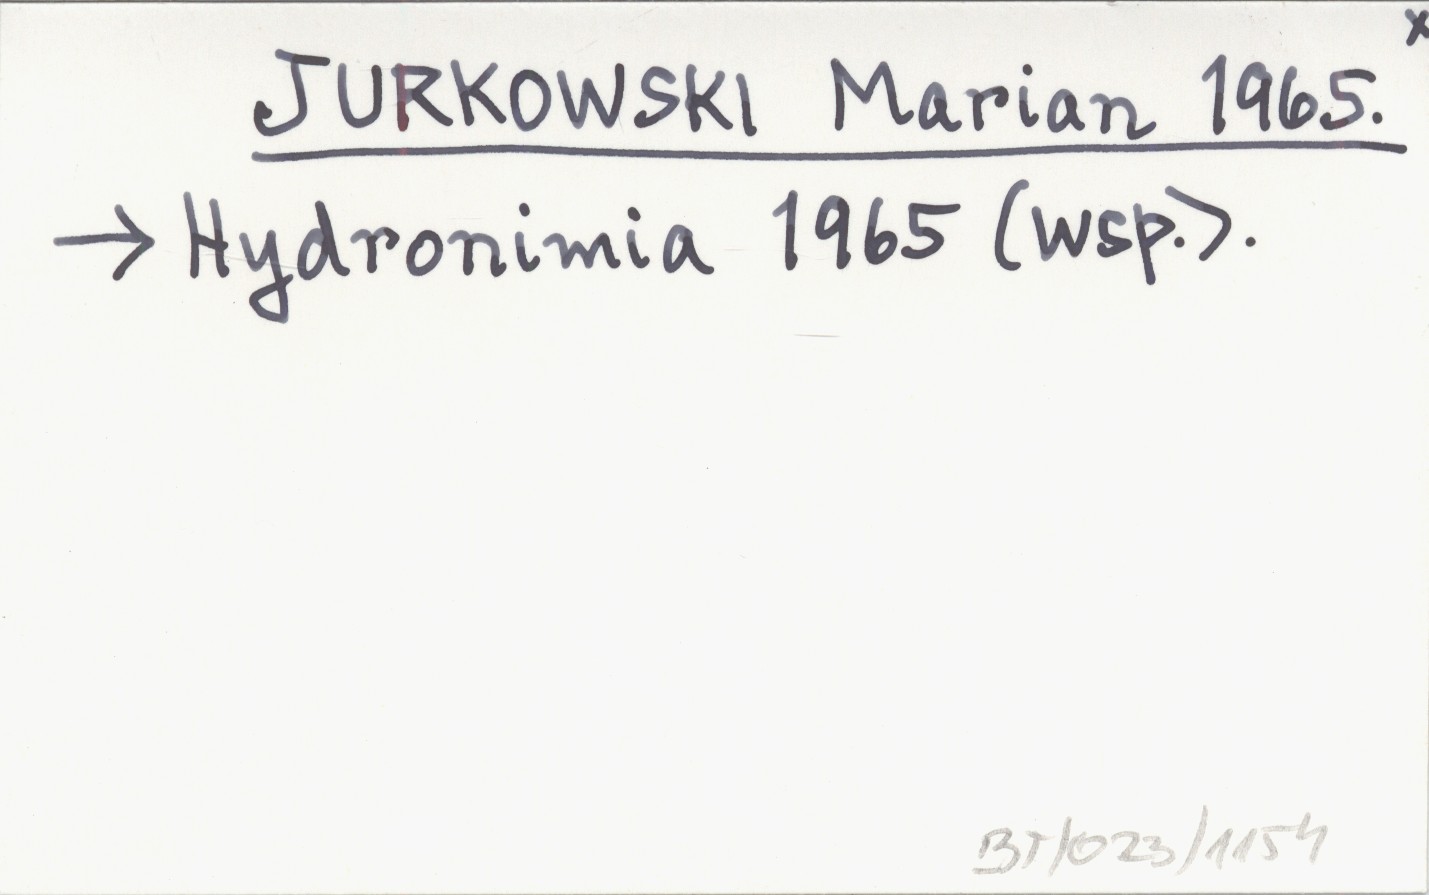 x
JURKOWSKI Marian 1965.
→ Hydronimia 1965 (wsp.).
BT/023/1154